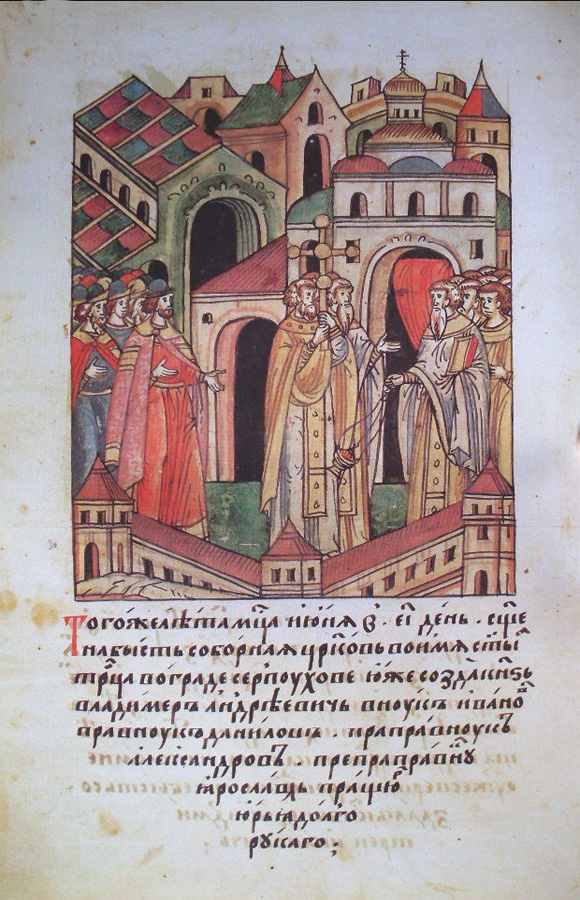 Тогожелѣтамц҃а июня въ . еı҃ день . сще
набысть соборная цр҃ковь во имя ст҃ыя
трц҃а во граде серпоухове юже созда кнѧзь
владимеръ андрѣевичь вноукъ ивано
въ правноукъ данилов . праправноукъ
александровъ препраправну
ярославль пращю
юрья долго
рукаго :